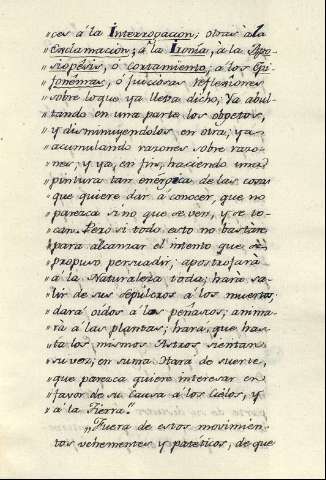 "ces à la Interrogacion; otras à la
"Exclamacion; à la Ironia, à la Apo-
"siopésis, ò Cortamiento; a los Epi-
"fonémas, ó juiciosas reflexîones
"sobre loque ya lleva dicho; Ya abul-
"tando en una parte los objetos,
"y disminuyendolos, en otra; ya
"acumulando razones sobre razo-
"nes; y ya, en fin, haciendo una
"pintura tan enérgica de las cosas
"que quiere dar á conocer, que no
"paresca sino que se ven, y se to-
"can. Pero si todo esto no bastàre
"para alcanzar el intento que se
"propuso persuadir; apostrofarà
"à la Naturaleza toda; hara sa-
"lir de sus sepulcros a los muertos;
"dará oídos a las peñascos; anima-
"rà a las plantas; hara, que has-
"ta los mismos Astros sientan
"su vez; en suma Hará de suerte,
"que paresca quiere interesar en
"favor de su Causa à los Cielos, y
"a la Tierra."
"Fuera de estos movimien-
"tos vehementes y pateticos, de que